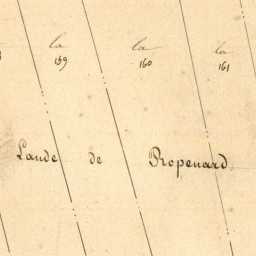 la la la
159 160 161
Lande de Propenard